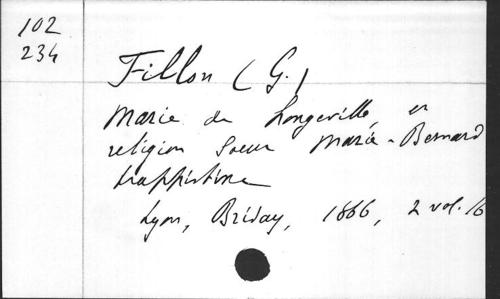 102
234
Fillon (G.)
Marie de Longeville, en
religion Soeur Marie-Bernard
trappistine
Lyon, Briday, 1866, 2 vol. 16